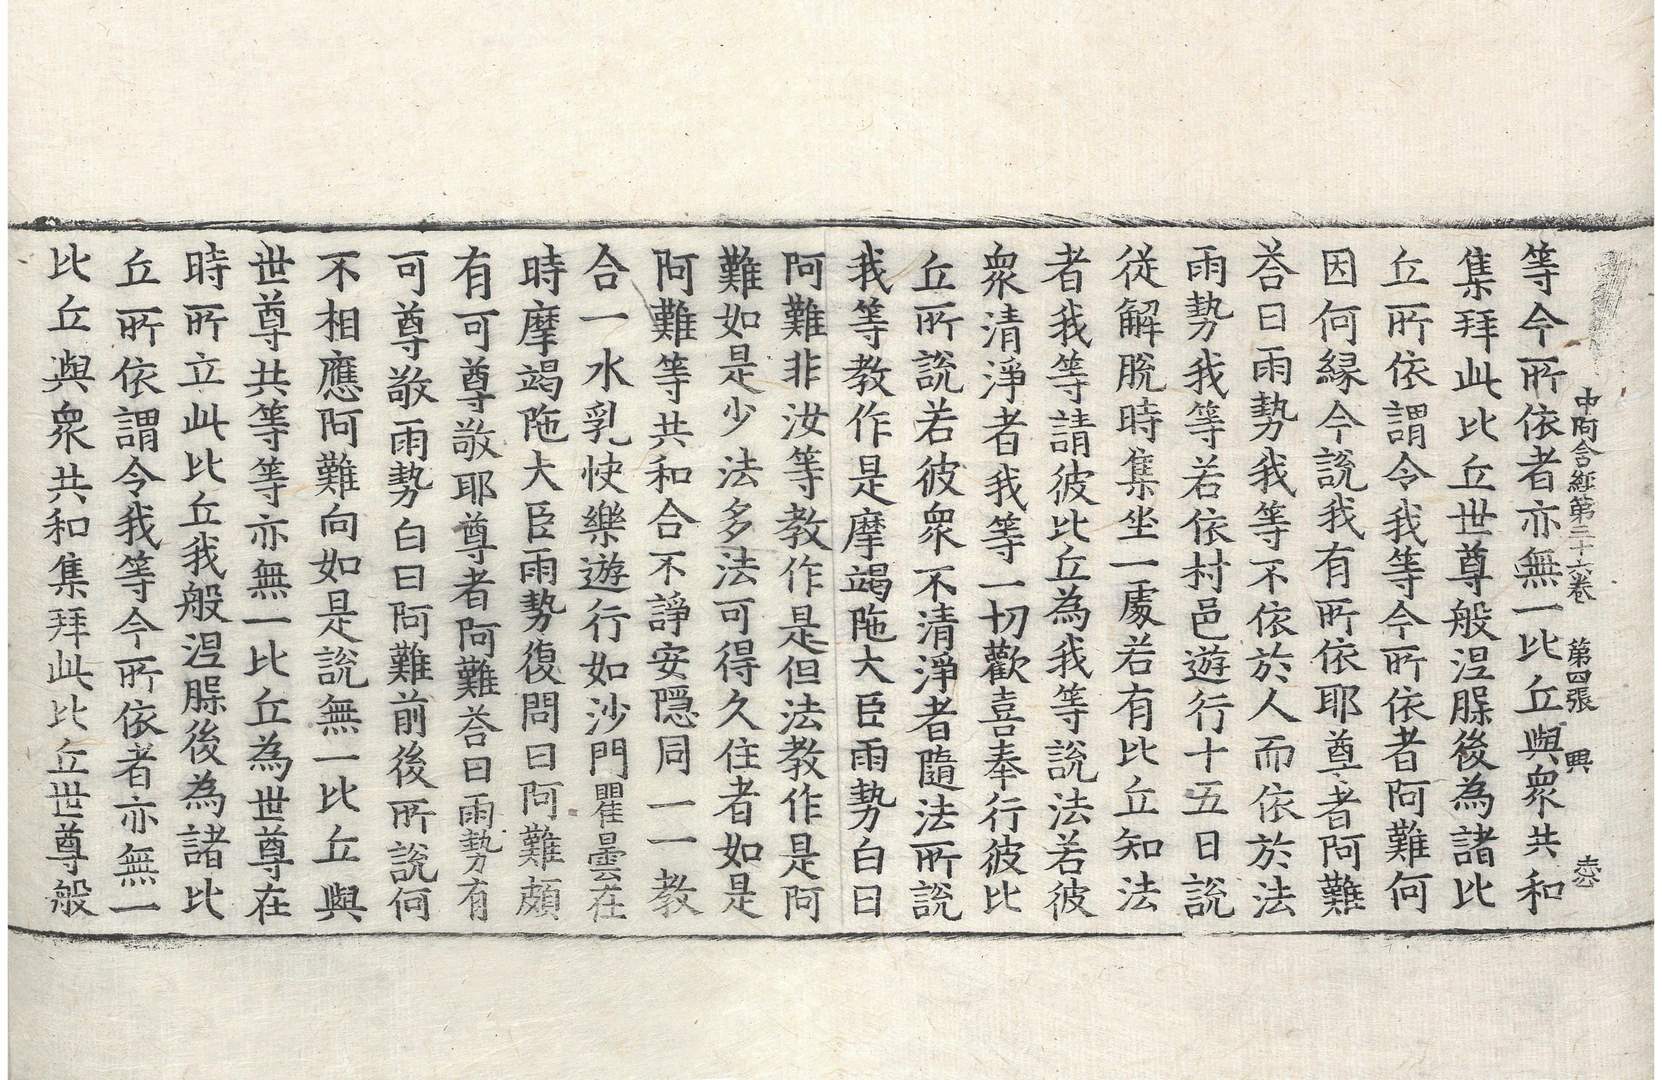 中阿含經第三十六卷 第四張 興
等今所依者亦無一比丘與衆共和
集拜此比丘世尊般涅槃後為諸比
丘所依謂令我等今所依者阿難何
因何緣今說我有所依耶尊者阿難
荅曰雨勢我等不依於人而依於法
雨勢我等若依村邑遊行十五日說
從解脫時集坐一處若有比丘知法
者我等請彼比丘為我等說法若彼
衆清淨者我等一切歡喜奉行彼比
丘所說若彼衆不清淨者隨法所說
我等教作是摩竭陁大臣雨勢白曰
阿難非汝等教作是但法教作是阿
難如是少法多法可得久住者如是
阿難等共和合不諍安隱同一一教
合一水乳快樂遊行如沙門瞿曇在
時摩竭陁大臣雨勢復問曰阿難頗
有可尊敬耶尊者阿難荅曰雨勢有
可尊敬雨勢白曰阿難前後所說何
不相應阿難向如是說無一比丘與
世尊共等等亦無一比丘為世尊在
時所立此比丘我般涅槃後為諸比
丘所依謂令我等今所依者亦無一
比丘與衆共和集拜此比丘世尊般